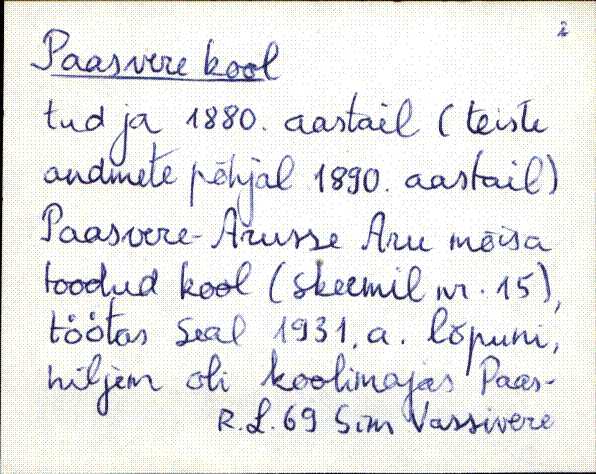 2
Paasvere kool
tud ja 1880. aastail (teiste
andmete põhjal 1890. aastail)
Paasvere-Arusse Aru mõisa
toodud kool (skeemil nr. 15),
töötas seal 1931. a. lõpuni,
hiljem oli koolimajas Paas-
R.L. 69 Sim Vassivere